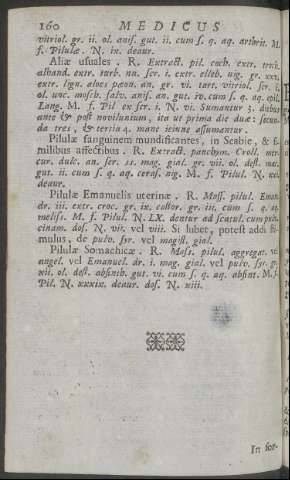 160 MEDICUS
vitriol. gr. ii. ol. anis. gut. ii. cum s. q. aq. M.
f. Pilulæ. N. ix. deaur.
Aliæ usuales. R. Extract. pil. coch. extr. troch.
alhand. extr. turb. nn. scr. i. extr. elleb. nig. gr. xxx.
extr. lign. aloes pæon. an. gr. vi. tart. vitriol. scr. i.
ol. unc. mosch. salv. anis. an. gut. iv. cum s. q. aq. epil.
Lang. M. f. Pil ex scr. i. N. vi. Sumantur 3. duabus
ante & post novilunium, ita ut prima die duæ: secun-
da tres, & tertia 4. mane ieiune assumantur.
Pilulæ sanguinem mundificantes, in Scabie, & si-
milibus affectibus. R. Extract. panchym. Croll. mer-
cur. dulc. an. scr. ss. mag. gial. gr. vii. ol. dest. mac.
gut. ii. cum s. q. aq. ceras. nig. M. f. Pilul. N. xx.
deaur.
Pilulæ Emanuelis uterinæ. R. Mass. pilul. Eman.
dr. iii. extr. croc. gr. ix. castor. gr. iii. cum s. q. aq.
meliss. M. f. Pilul. N. LX. dentur ad scatul. cum
cinam. dos. N. vii. vel viii. Si lubet, potest addi sti-
mulus, de pulv. syr. vel magist. gial.
Pilulæ Stomachicæ. R. Mass. pilul. aggregat. vel
angel. vel Emanuel. dr. i. mag. gial. vel pulv. syr. gr.
xii. ol. dest. absinth. gut. vi. cum s. q. aq. absint. M. f.
Pil. N. xxxix. deaur. dos. N. xiii.
In for-